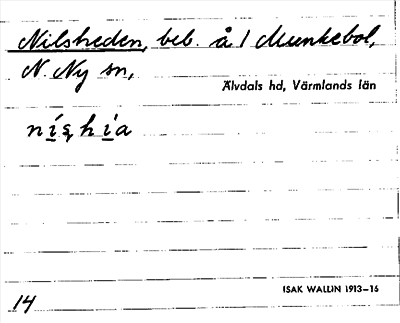 Nilsheden, beb. å 1 Munkebol,
N. Ny sn,
Älvdals hd, Värmlands län
nís̨hia
ISAK WALLIN 1913–16
14